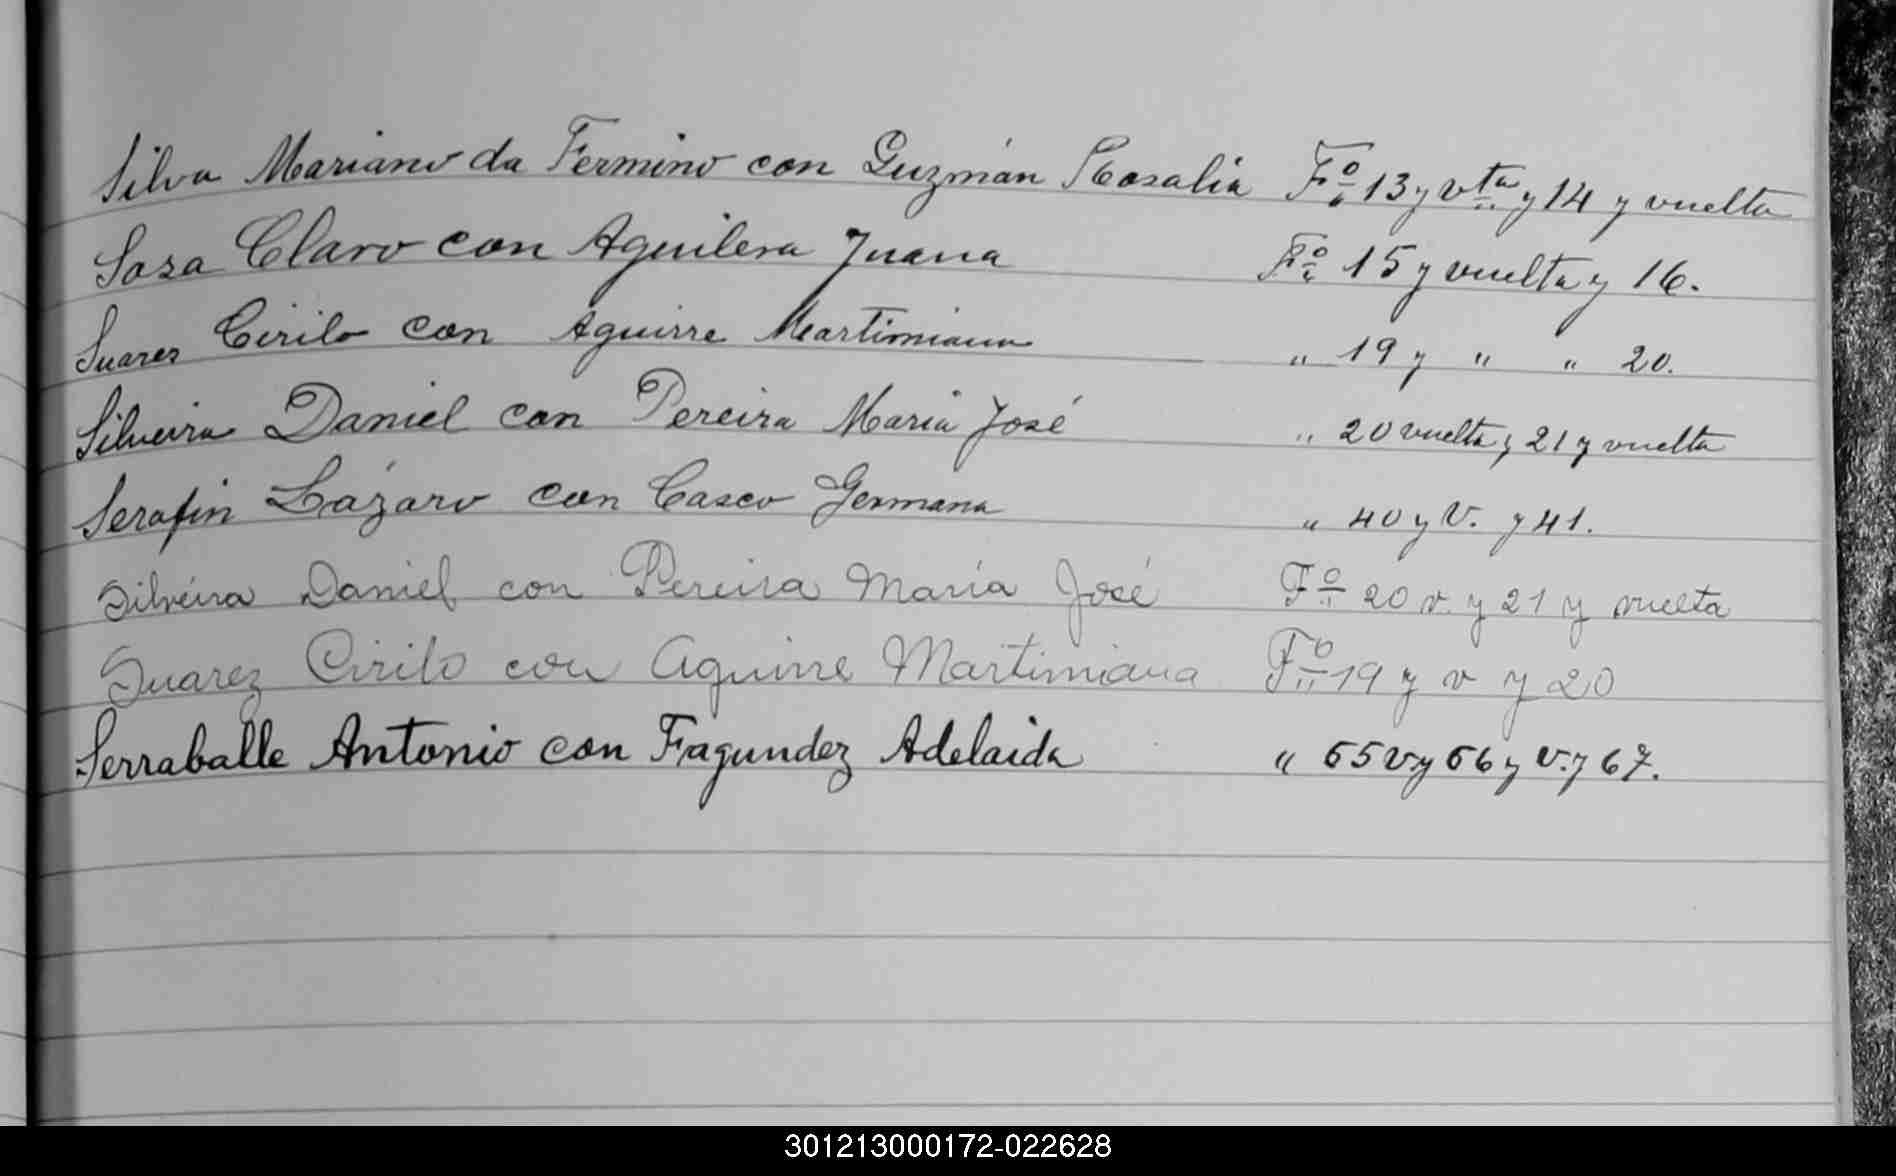 Silva Mariano da Fermino con Guzmán Rosalia Fº 13 y vta y 14 y vuelta
Sosa Claro con Aguilera Juana Fº 15 y vuelta y 16.
Suarez Cirilo con Aguirre Martimiana " 19 y " " 20.
Silveira Daniel con Pereira Maria José " 20 vuelta y 21 y vuelta
Serafin Lázaro con Casco Germana " 40 y V. y 41.
Silveira Daniel con Pereira María José Fº 20 v. y 21 y vuelta
Suarez Cirilo con Aguirre Martimiana Fº 19 y v y 20
Serraballe Antonio con Fagundez Adelaida " 65 v y 66 y v. y 67.
301213000172-022628